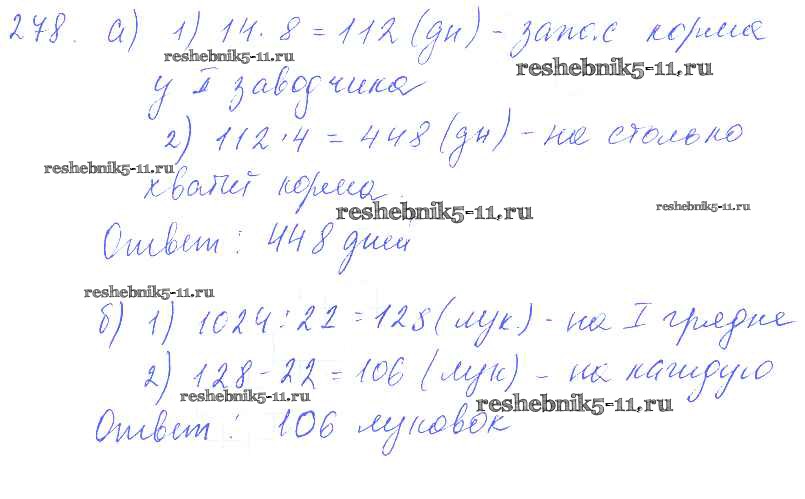 278. а) 1) 14 · 8 = 112 (дн) - запас корма
reshebnik5-11.ru
reshebnik5-11.ru
у I заводчика
2) 112 · 4 = 448 (дн) - на столько
reshebnik5-11.ru
хватит корма.
reshebnik5-11.ru
reshebnik5-11.ru
Ответ: 448 дней
reshebnik5-11.ru
б) 1) 1024 : 21 = 128 (лук.) - на I грядке
2) 128 - 22 = 106 (лук) - на каждую
reshebnik5-11.ru
reshebnik5-11.ru
Ответ: 106 луковок